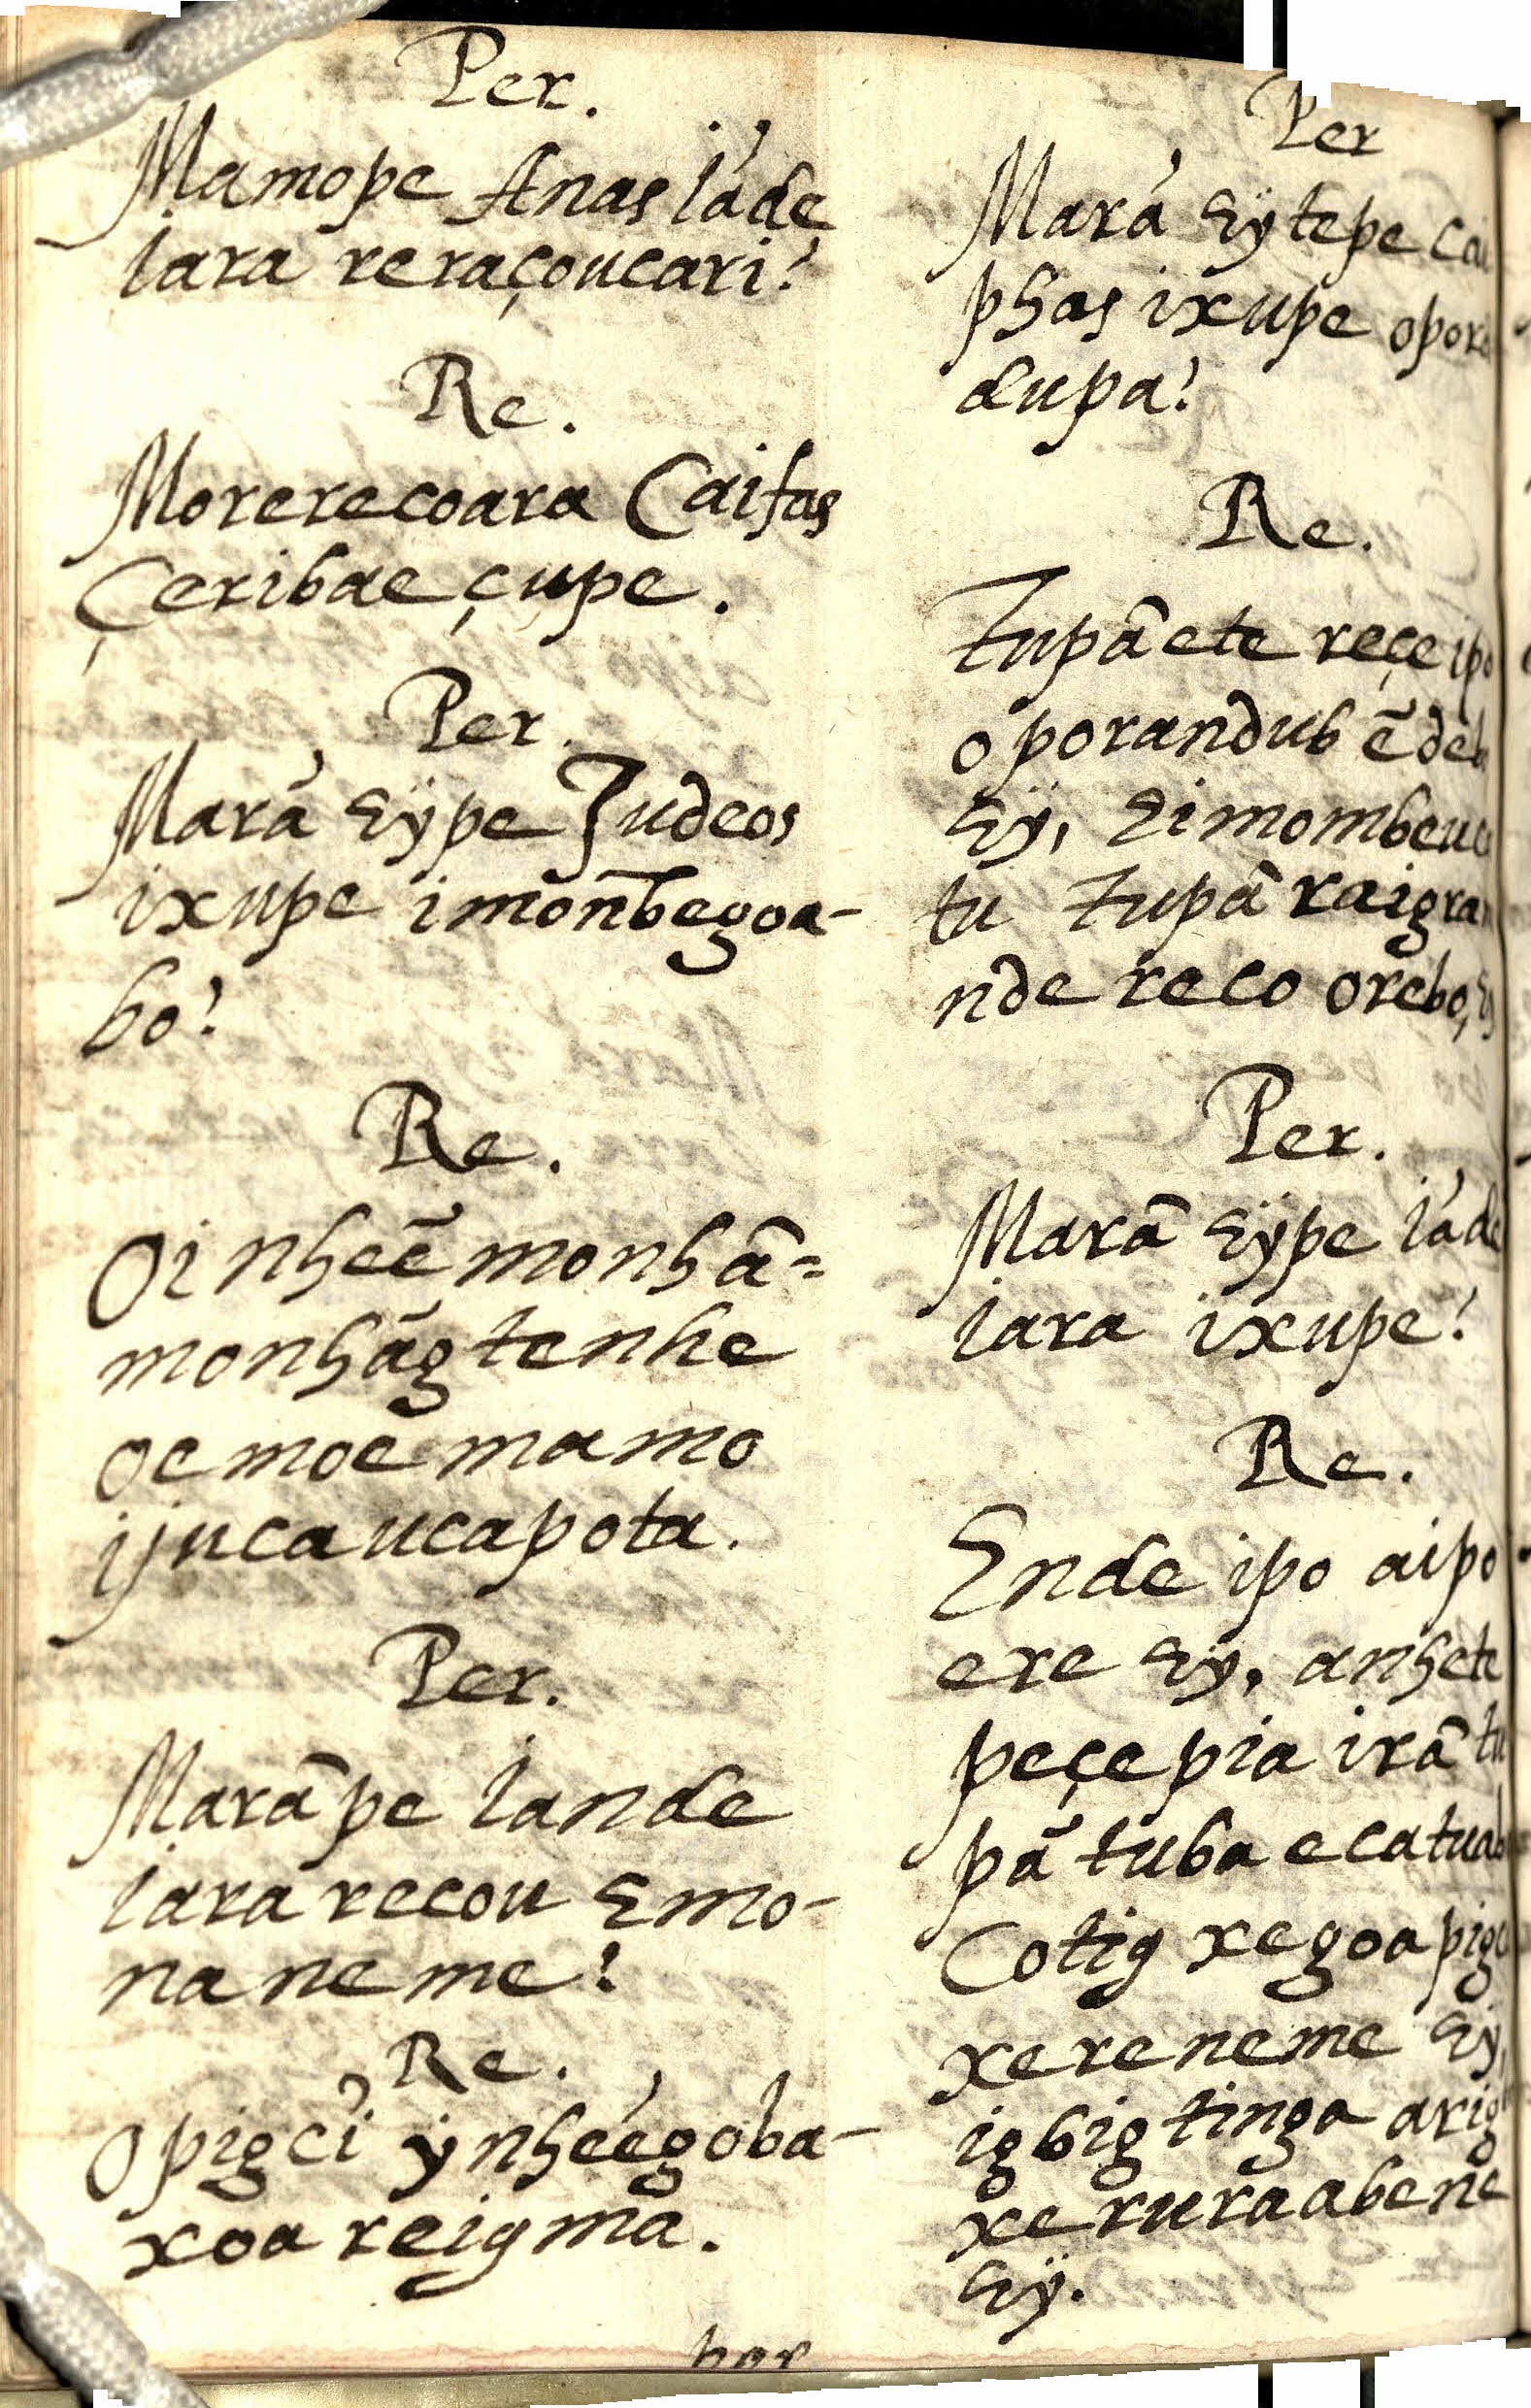 Per.
Mamope Anas iáde
iara reraçoucari?
Re.
Morerecoara Caifas
Çeribae çupe.
Per.
Marã eÿpe Judeos
ixupe imoñbegoa-
bo?
Re.
Oi nheẽ monhã=
monhãg tenhe
oemoẽ mamo
ijucaucapota.
Per.
Marãpe iande
iara recou Emo-
naneme?
Re.
Opigci ynheégoba-
xoareigma.
Per
Marã eÿtepe
phas ixupe
dupa?
Re.
Tupã ete reçe
oporandub
eÿ, Eimombeu
tu Tupã
nde reco orebo,
Per.
Marã eÿpe iáde
iara ixupe?
Re.
Ende ipo aipo
ere eÿ, anhete
peçepia irã tu
pã tuba ecatuab
Cotig xegoapig
xereneme eÿ,
igbigtinga arig
xe rurãabene
eÿ.
por